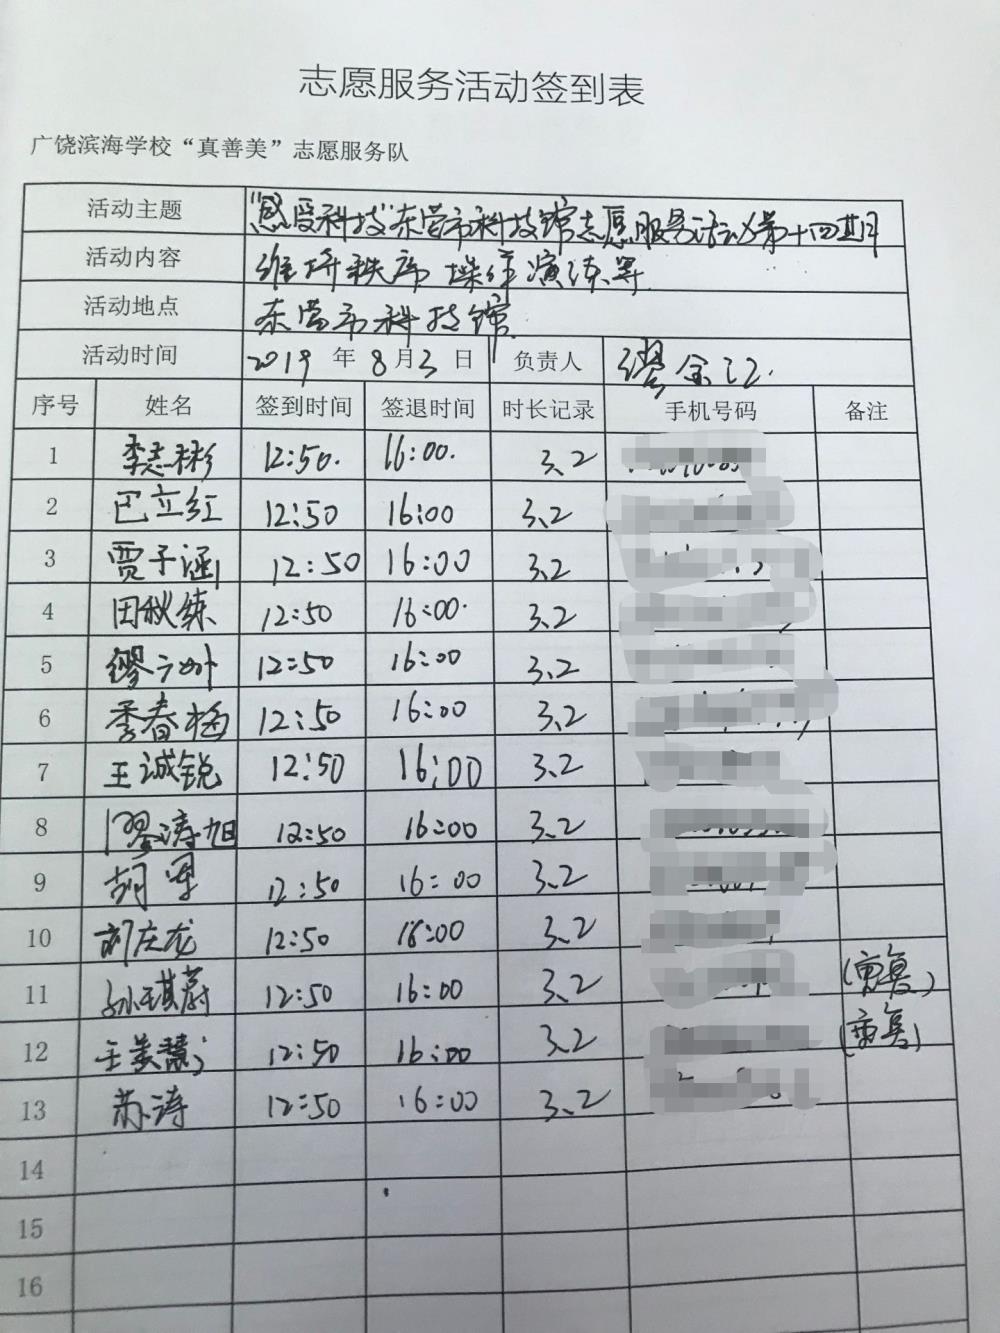 志愿服务活动签到表
广饶滨海学校“真善美”志愿服务队
活动主题 “感受科技”东营市科技馆志愿服务活动第十四期
活动内容 维持秩序 操作演练等
活动地点 东营市科技馆
活动时间 2019 年 8 月 3 日 负责人 缪金江.
序号 姓名 签到时间 签退时间 时长记录 手机号码 备注
1 李志彬 12:50. 16:00. 3.2
2 巴立红 12:50 16:00 3.2
3 贾子涵 12:50 16:00 3.2
4 田秋练 12:50 16:00. 3.2
5 缪 12:50 16:00 3.2
6 李春梅 12:50 16:00 3.2
7 王诚锐 12:50 16:00 3.2
8 缪涛旭 12:50 16:00 3.2
9 胡军 12:50 16:00 3.2
10 刘庆龙 12:50 16:00 3.2
11 孙琪蔚 12:50 16:00 3.2 (重复)
12 王美慧 12:50 16:00 3.2 (重复)
13 苏涛 12:50 16:00 3.2
14
15
16